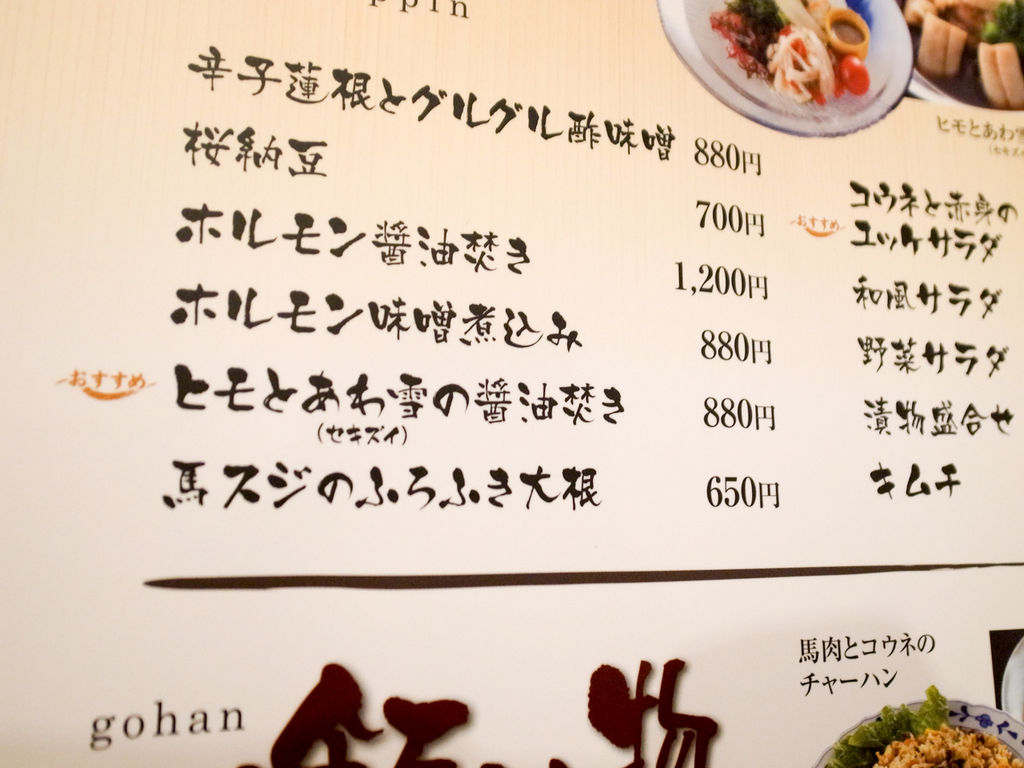 ppin
辛子蓮根とグルグル酢味噌 880円
桜納豆 700円
ホルモン醤油焚き 1,200円
ホルモン味噌煮込み 880円
おすすめ ヒモとあわ雪の醤油焚き 880円
(セキズイ)
馬スジのふろふき大根 650円
ヒモとあわ雪
(セキズイ
おすすめ
コウネと赤身の
ユッケサラダ
和風サラダ
野菜サラダ
漬物盛合せ
キムチ
gohan
飯物
馬肉とコウネの
チャーハン